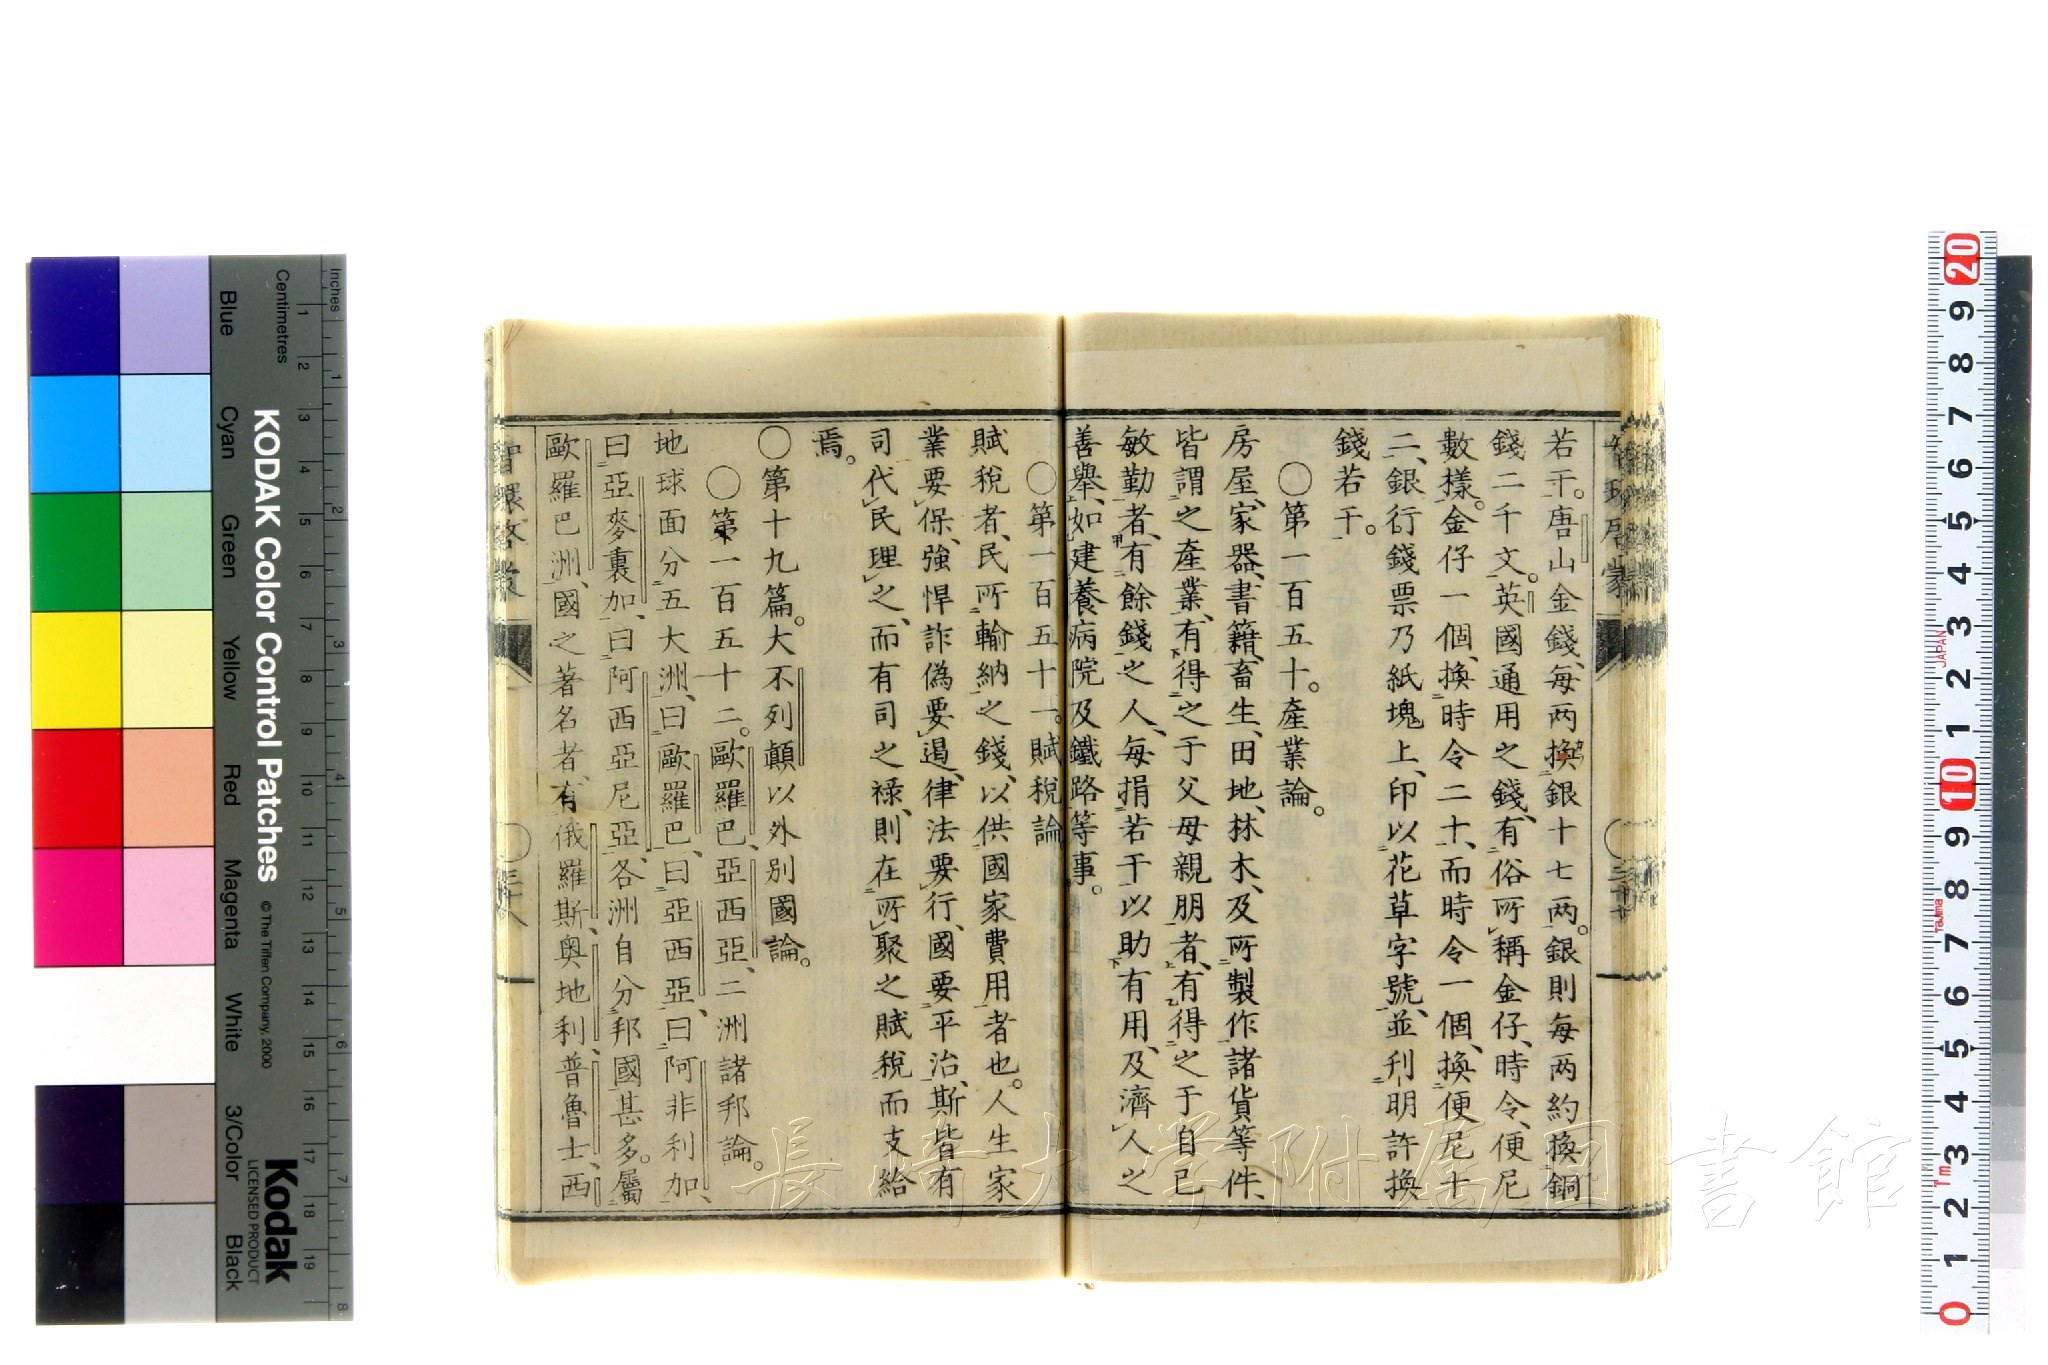 若干。唐山金錢、每两換銀十七两。銀則每两約換銅
錢二千文。英國通用之錢、有俗所稱金仔、時令、便尼
數樣。金仔一個、換時令二十、而時令一個、換便尼十
二、銀行錢票乃紙塊上、印以花草字號、並刋明許換
錢若干。
〇第一百五十。產業論。
房屋、家器、書籍、畜生、田地、林木、及所製作諸貨等件、
皆謂之產業、有得之于父母親朋者、有得之于自己
敏勤者、有餘錢之人、每捐若干以助有用、及濟人之
善舉、如建養病院及鐵路等事。
〇第一百五十一。賦稅論
賦稅者、民所輸納之錢、以供國家費用者也。人生家
業要保、強悍詐僞要遏、律法要行、國要平治、斯皆有
司代民理之、而有司之祿、則在所聚之賦稅而支給
焉。
〇第十九篇。大不列顛以外別國論。
〇第一百五十二。歐羅巴、亞西亞、二洲諸邦論。
地球面分五大洲、曰歐羅巴、曰亞西亞、曰阿非利加、
曰亞麥裏加、曰阿西亞尼亞、各洲自分邦國甚多。屬
歐羅巴洲、國之著名者、有俄羅斯、奧地利、普魯士、西
智環啓蒙
三十八
三十七
長崎大学附属図書館
KODAK Color Control Patches
© The Tiffen Company, 2000
Kodak
LICENSED PRODUCT
Inches
Centimetres
Blue
Cyan
Green
Yellow
Red
Magenta
White
3/Color
Black
1 2 3 4 5 6 7 8 9 10 11 12 13 14 15 16 17 18 19
1 2 3 4 5 6 7 8
20 9 8 7 6 5 4 3 2 1 10 9 8 7 6 5 4 3 2 1 0
JAPAN
Tajima